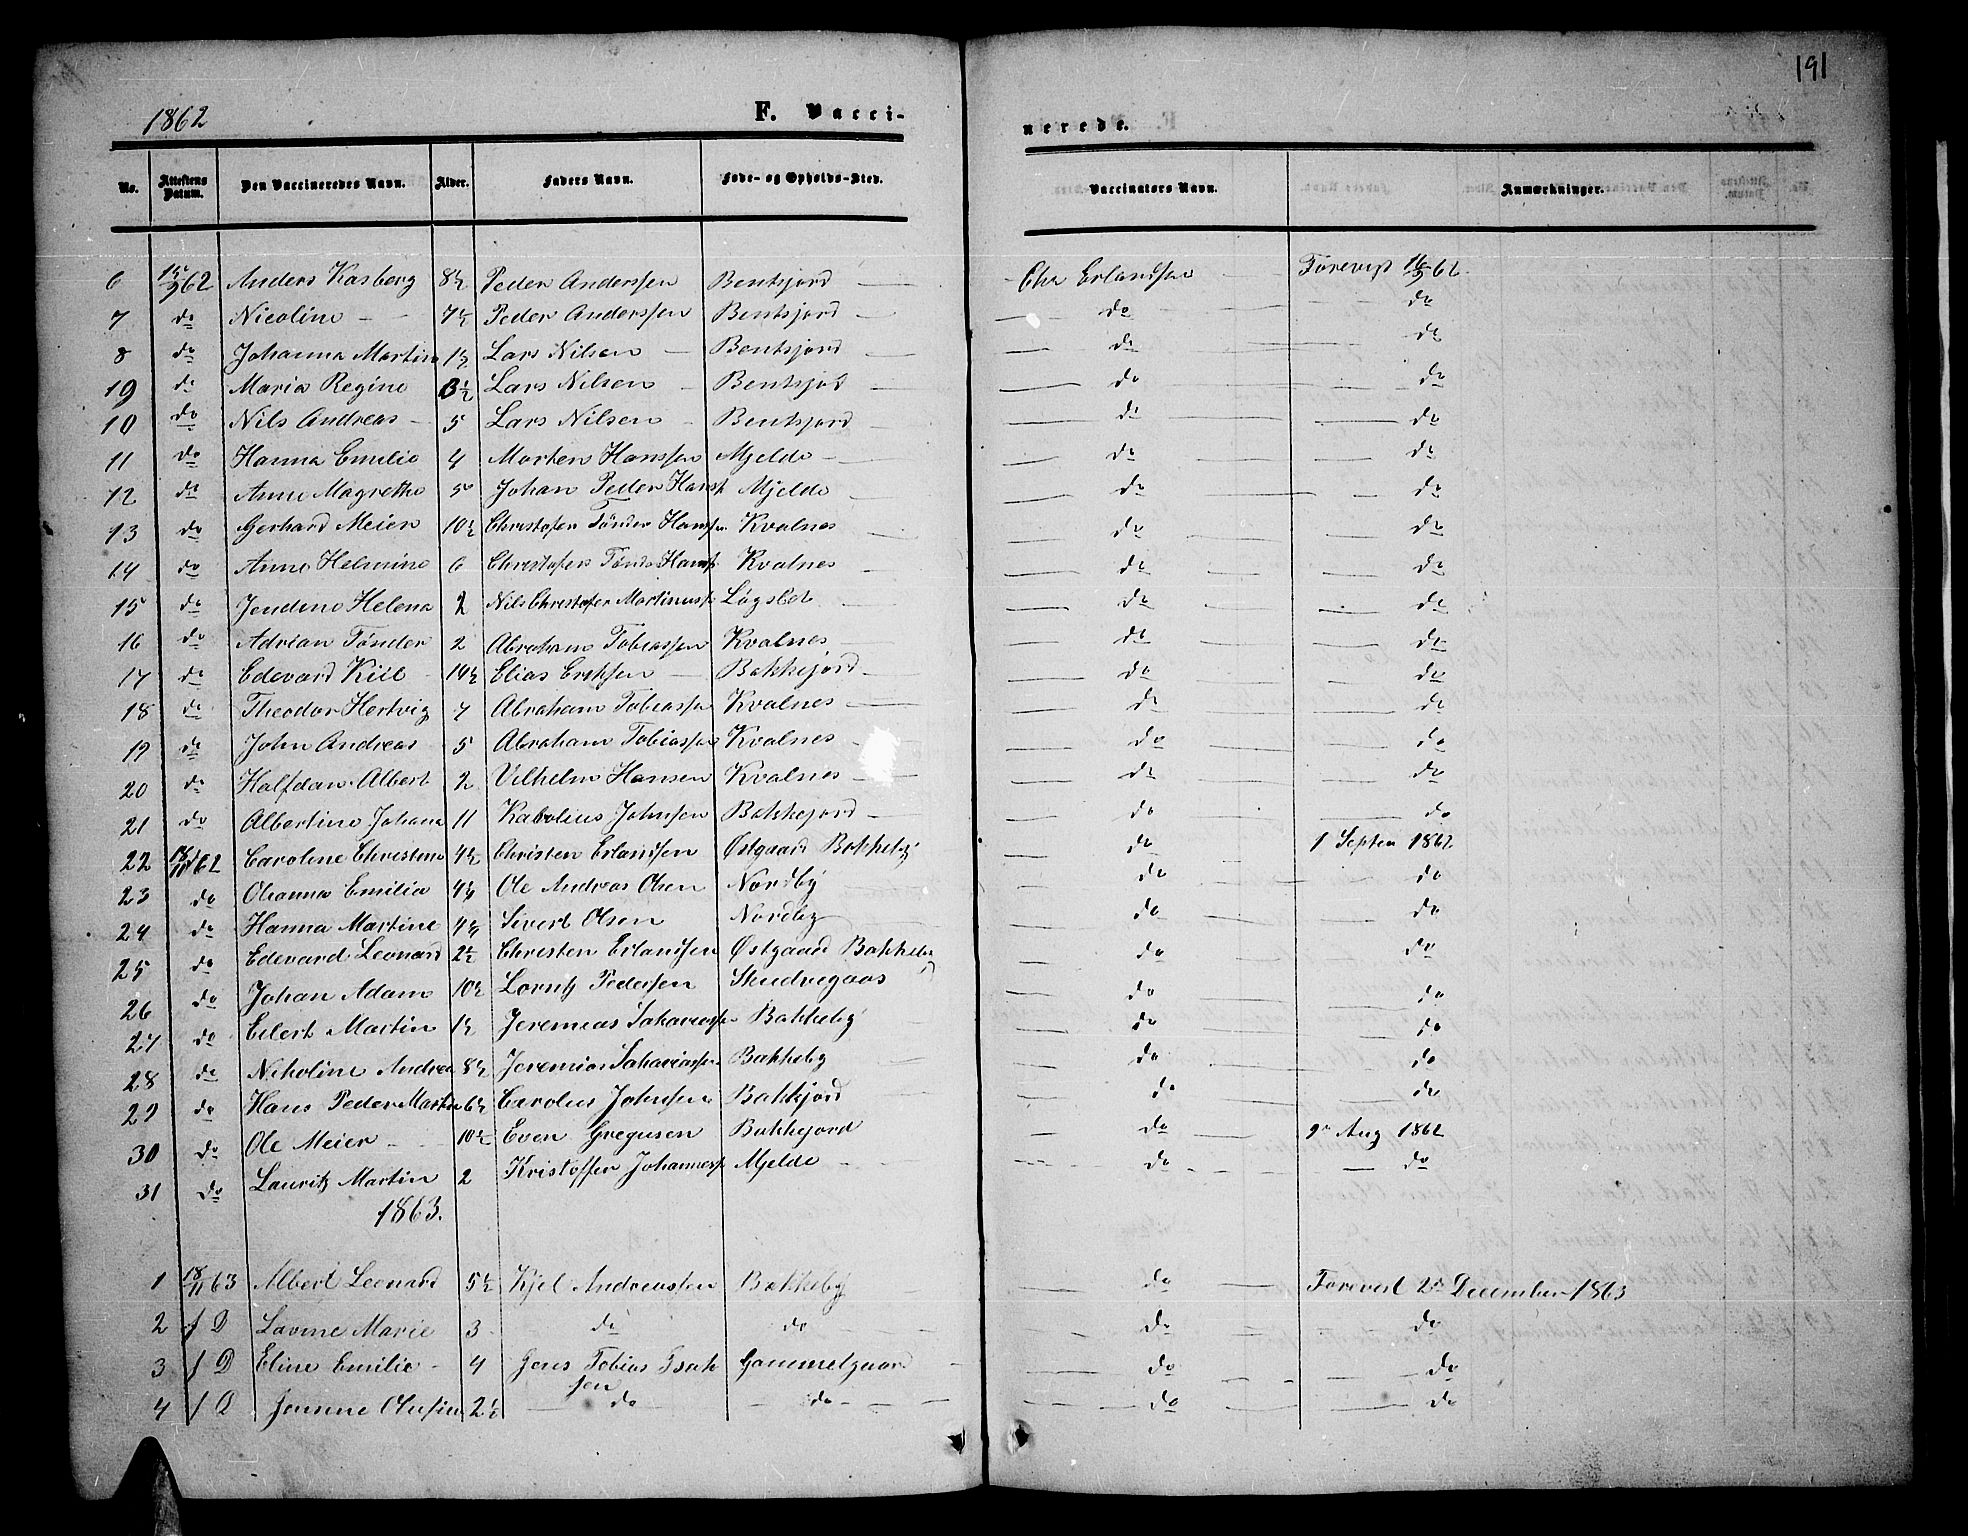 191
1862 F. Vacci- nerede.
No. Attestens Datum. Den Vaccineredes Navn. Alder. Faders Navn. Føde- og Opholds-Sted. Vaccinators Navn. Anmærkninger.
6 15/9 62 Anders Kasberg 8½ Peder Anderssen Bentsjord Chr Erlandsen Forevist 16/9 62
7 do Nicoline - - 7½ Peder Anderssen Bentsjord do do
8 do Johanna Martin 1½ Lars Nilsen Bentsjord do do
19 do Maria Regine 3½ Lars Nilsen Bentsjod do do
10 do Nils Andreas 5 Lars Nilsen Bentsjord do do
11 do Hanna Emilie 4 Morten Hanssen Mjelde do do
12 do Anne Magrethe 5 Johan Peder Hanss Mjelde do do
13 do Gerhard Meier 10½ Christofer Tønder Hanssen Kvalnes do do
14 do Anne Helmine 6 Christofers Tønde Hanss Kvalnes do do
15 do Jendine Helena 2 Nils Christofer Martinuss do do
16 do Adrian Tønder 2 Abraham Tobiassen Kvalnes do do
17 do Edevard Kiil 14½ Elias Eriksen Bakkejord do do
18 do Theodor Hertvig 7 Abraham Tobiassen Kvalnes do do
19 do John Andreas 5 Abraham Tobiassen Kvalnes do do
20 do Halfdan Albert 2 Vilhelm Hansen Kvalnes do do
21 do Albertine Johana 11 Karolius Johnsen Bakkejord do do
22 18/10 62 Caroline Christine 4½ Christen Erlandsen Østgaard Bakkeby do 1 Septen 1862
23 do Oleanna Emilia 4½ Ole Andreas Olsen Nordby do do
24 do Hanna Martine 4½ Sivert Olsen Nordby do do
25 do Edevard Leonard 2½ Christen Erlandsen Østgaard Bakkeby do do
26 do Johan Adam 10½ Lorntz Pedersen do do
27 do Eilert Martin 1½ Jeremias Sakariassen Bakkeby do do
28 do Nikoline Andrea 8½ Jeremias Sakariassen Bakkeby do do
29 do Hans Peder Martin 6½ Carolus Johnsen Bakkjord do do
30 do Ole Meier 10½ Even Gregusen Bakkejord do 9de Aug 1862
31 do Lauritz Martin 2 Kristoffer Johanness Mjelde do do
1863.
1 18/11 63 Albert Leonard 5½ Kjel Andreassen Bakkeby do Forevist 2de December 1863
2 f D Lavine Marie 3 do do do do
3 f D Eline Emilie 4 Jens Tobias Isak Gammelgaard do do
sen
4 f D Janne Olufine 2½ do do do do